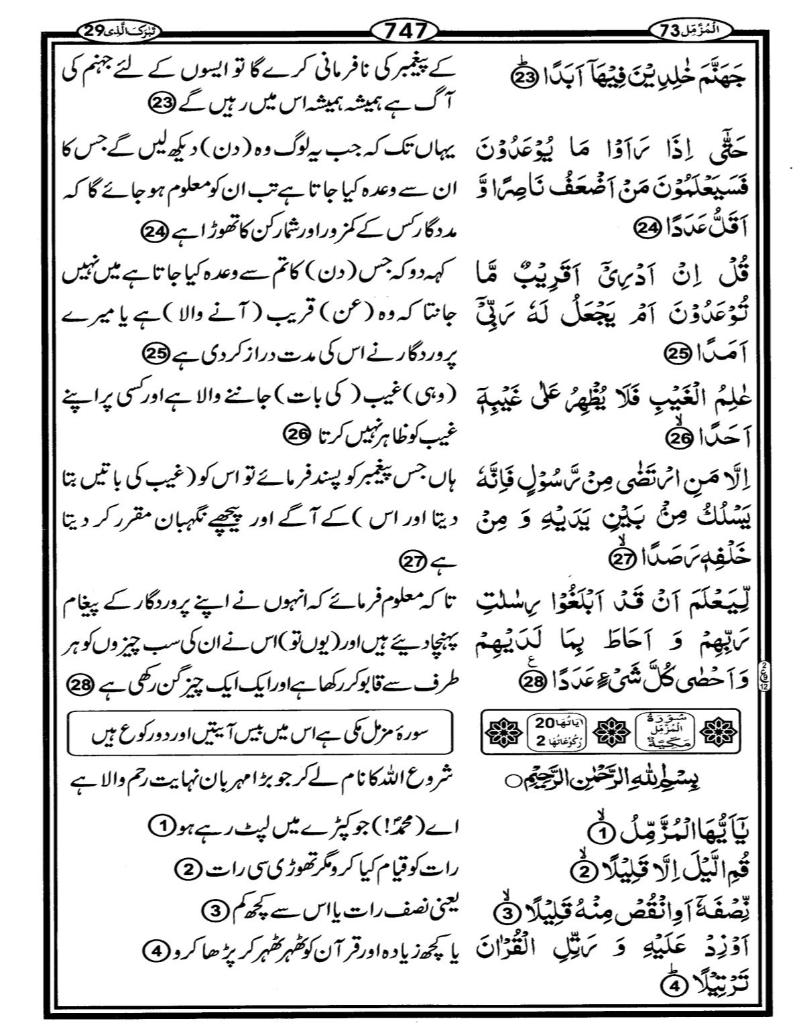 المزمل 73
747
تبٰرک الذی 29
جَهَنَّمَ خٰلِدِیْنَ فِیْهَاۤ اَبَدًا ؕ 23
حَتّٰۤی اِذَا رَاَوْا مَا یُوْعَدُوْنَ
فَسَیَعْلَمُوْنَ مَنْ اَضْعَفُ نَاصِرًا وَّ
اَقَلُّ عَدَدًا 24
قُلْ اِنْ اَدْرِیْۤ اَقَرِیْبٌ مَّا
تُوْعَدُوْنَ اَمْ یَجْعَلُ لَهٗ رَبِّیْۤ
اَمَدًا 25
عٰلِمُ الْغَیْبِ فَلَا یُظْهِرُ عَلٰی غَیْبِهٖۤ
اَحَدًا ۙ 26
اِلَّا مَنِ ارْتَضٰی مِنْ رَّسُوْلٍ فَاِنَّهٗ
یَسْلُكُ مِنْۢ بَیْنِ یَدَیْهِ وَ مِنْ
خَلْفِهٖ رَصَدًا ۙ 27
لِّیَعْلَمَ اَنْ قَدْ اَبْلَغُوْا رِسٰلٰتِ
رَبِّهِمْ وَ اَحَاطَ بِمَا لَدَیْهِمْ
وَ اَحْصٰی كُلَّ شَیْءٍ عَدَدًا ع 28
سورة المزمل مكية
اياتها 20
ركوعاتها 2
بِسْمِ اللّٰهِ الرَّحْمٰنِ الرَّحِیْمِ ○
یٰۤاَیُّهَا الْمُزَّمِّلُ ۙ 1
قُمِ الَّیْلَ اِلَّا قَلِیْلًا ۙ 2
نِّصْفَهٗۤ اَوِ انْقُصْ مِنْهُ قَلِیْلًا ۙ 3
اَوْ زِدْ عَلَیْهِ وَ رَتِّلِ الْقُرْاٰنَ
تَرْتِیْلًا ؕ 4
کے پیغمبر کی نافرمانی کرے گا تو ایسوں کے لئے جہنم کی
آگ ہے ہمیشہ ہمیشہ اس میں رہیں گے 23
یہاں تک کہ جب یہ لوگ وہ (دن) دیکھ لیں گے جس کا
ان سے وعدہ کیا جاتا ہے تب ان کو معلوم ہو جائے گا کہ
مددگار کس کے کمزور اور شمار کن کا تھوڑا ہے 24
کہہ دو کہ جس (دن) کا تم سے وعدہ کیا جاتا ہے میں نہیں
جانتا کہ وہ (عن) قریب (آنے والا) ہے یا میرے
پروردگار نے اس کی مدت دراز کر دی ہے 25
(وہی) غیب (کی بات) جاننے والا ہے اور کسی پر اپنے
غیب کو ظاہر نہیں کرتا 26
ہاں جس پیغمبر کو پسند فرمائے تو اس کو (غیب کی باتیں بتا
دیتا اور اس) کے آگے اور پیچھے نگہبان مقرر کر دیتا
ہے 27
تاکہ معلوم فرمائے کہ انہوں نے اپنے پروردگار کے پیغام
پہنچا دیئے ہیں اور (یوں تو) اس نے ان کی سب چیزوں کو ہر
طرف سے قابو کر رکھا ہے اور ایک ایک چیز گن رکھی ہے 28
سورۂ مزمل مکی ہے اس میں بیس آیتیں اور دو رکوع ہیں
شروع اللہ کا نام لے کر جو بڑا مہربان نہایت رحم والا ہے
اے (محمدؐ!) جو کپڑے میں لپٹ رہے ہو 1
رات کو قیام کیا کرو مگر تھوڑی سی رات 2
یعنی نصف رات یا اس سے کچھ کم 3
یا کچھ زیادہ اور قرآن کو ٹھہر ٹھہر کر پڑھا کرو 4